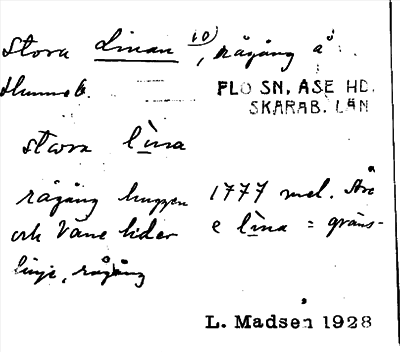 Stora Linan 10), rågång å
FLO SN, ÅSE HD.
SKARAB. LÄN
stora lìna
rågång huggen 1777 mel. Åse
och Vane hider e lìna = gräns-
linje, rågång
L. Madsen 1928